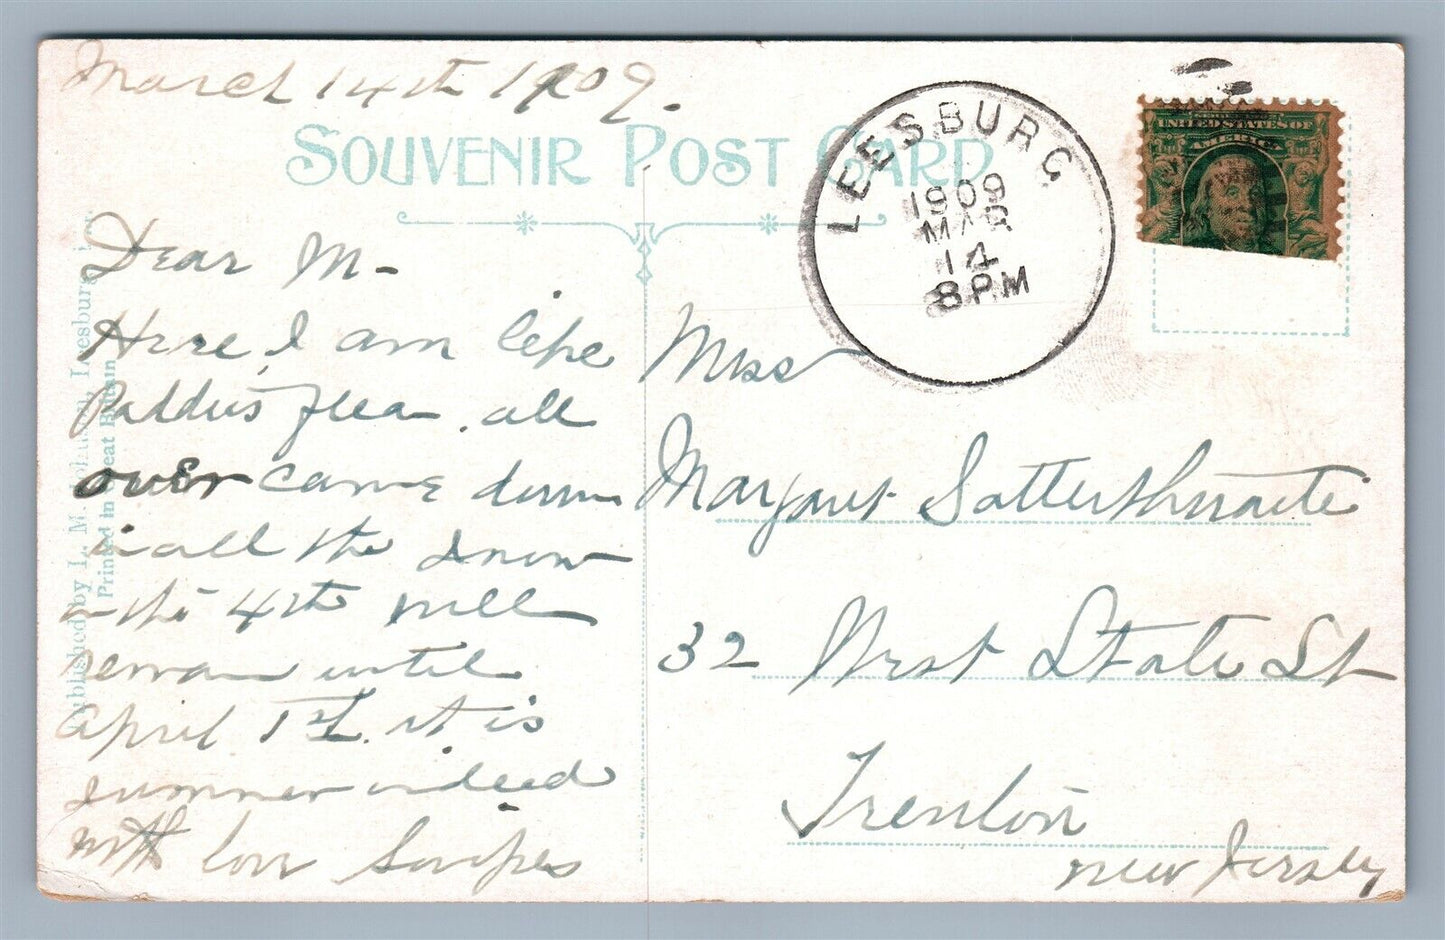 March 14th 1909.
SOUVENIR POST CARD
LEESBURG
1909
MAR
14
8 P.M
UNITED STATES OF
AMERICA
Dear M-
Here I am like
Paddie's flea, all
over came down
in all the snow
on the 4th will
remain until
April 1st. it is
summer indeed
with love
Miss
Margaret Satterthwaite
32 West State St
Trenton
New Jersey
Published by L. M. Leesburg
Printed in Great Britain